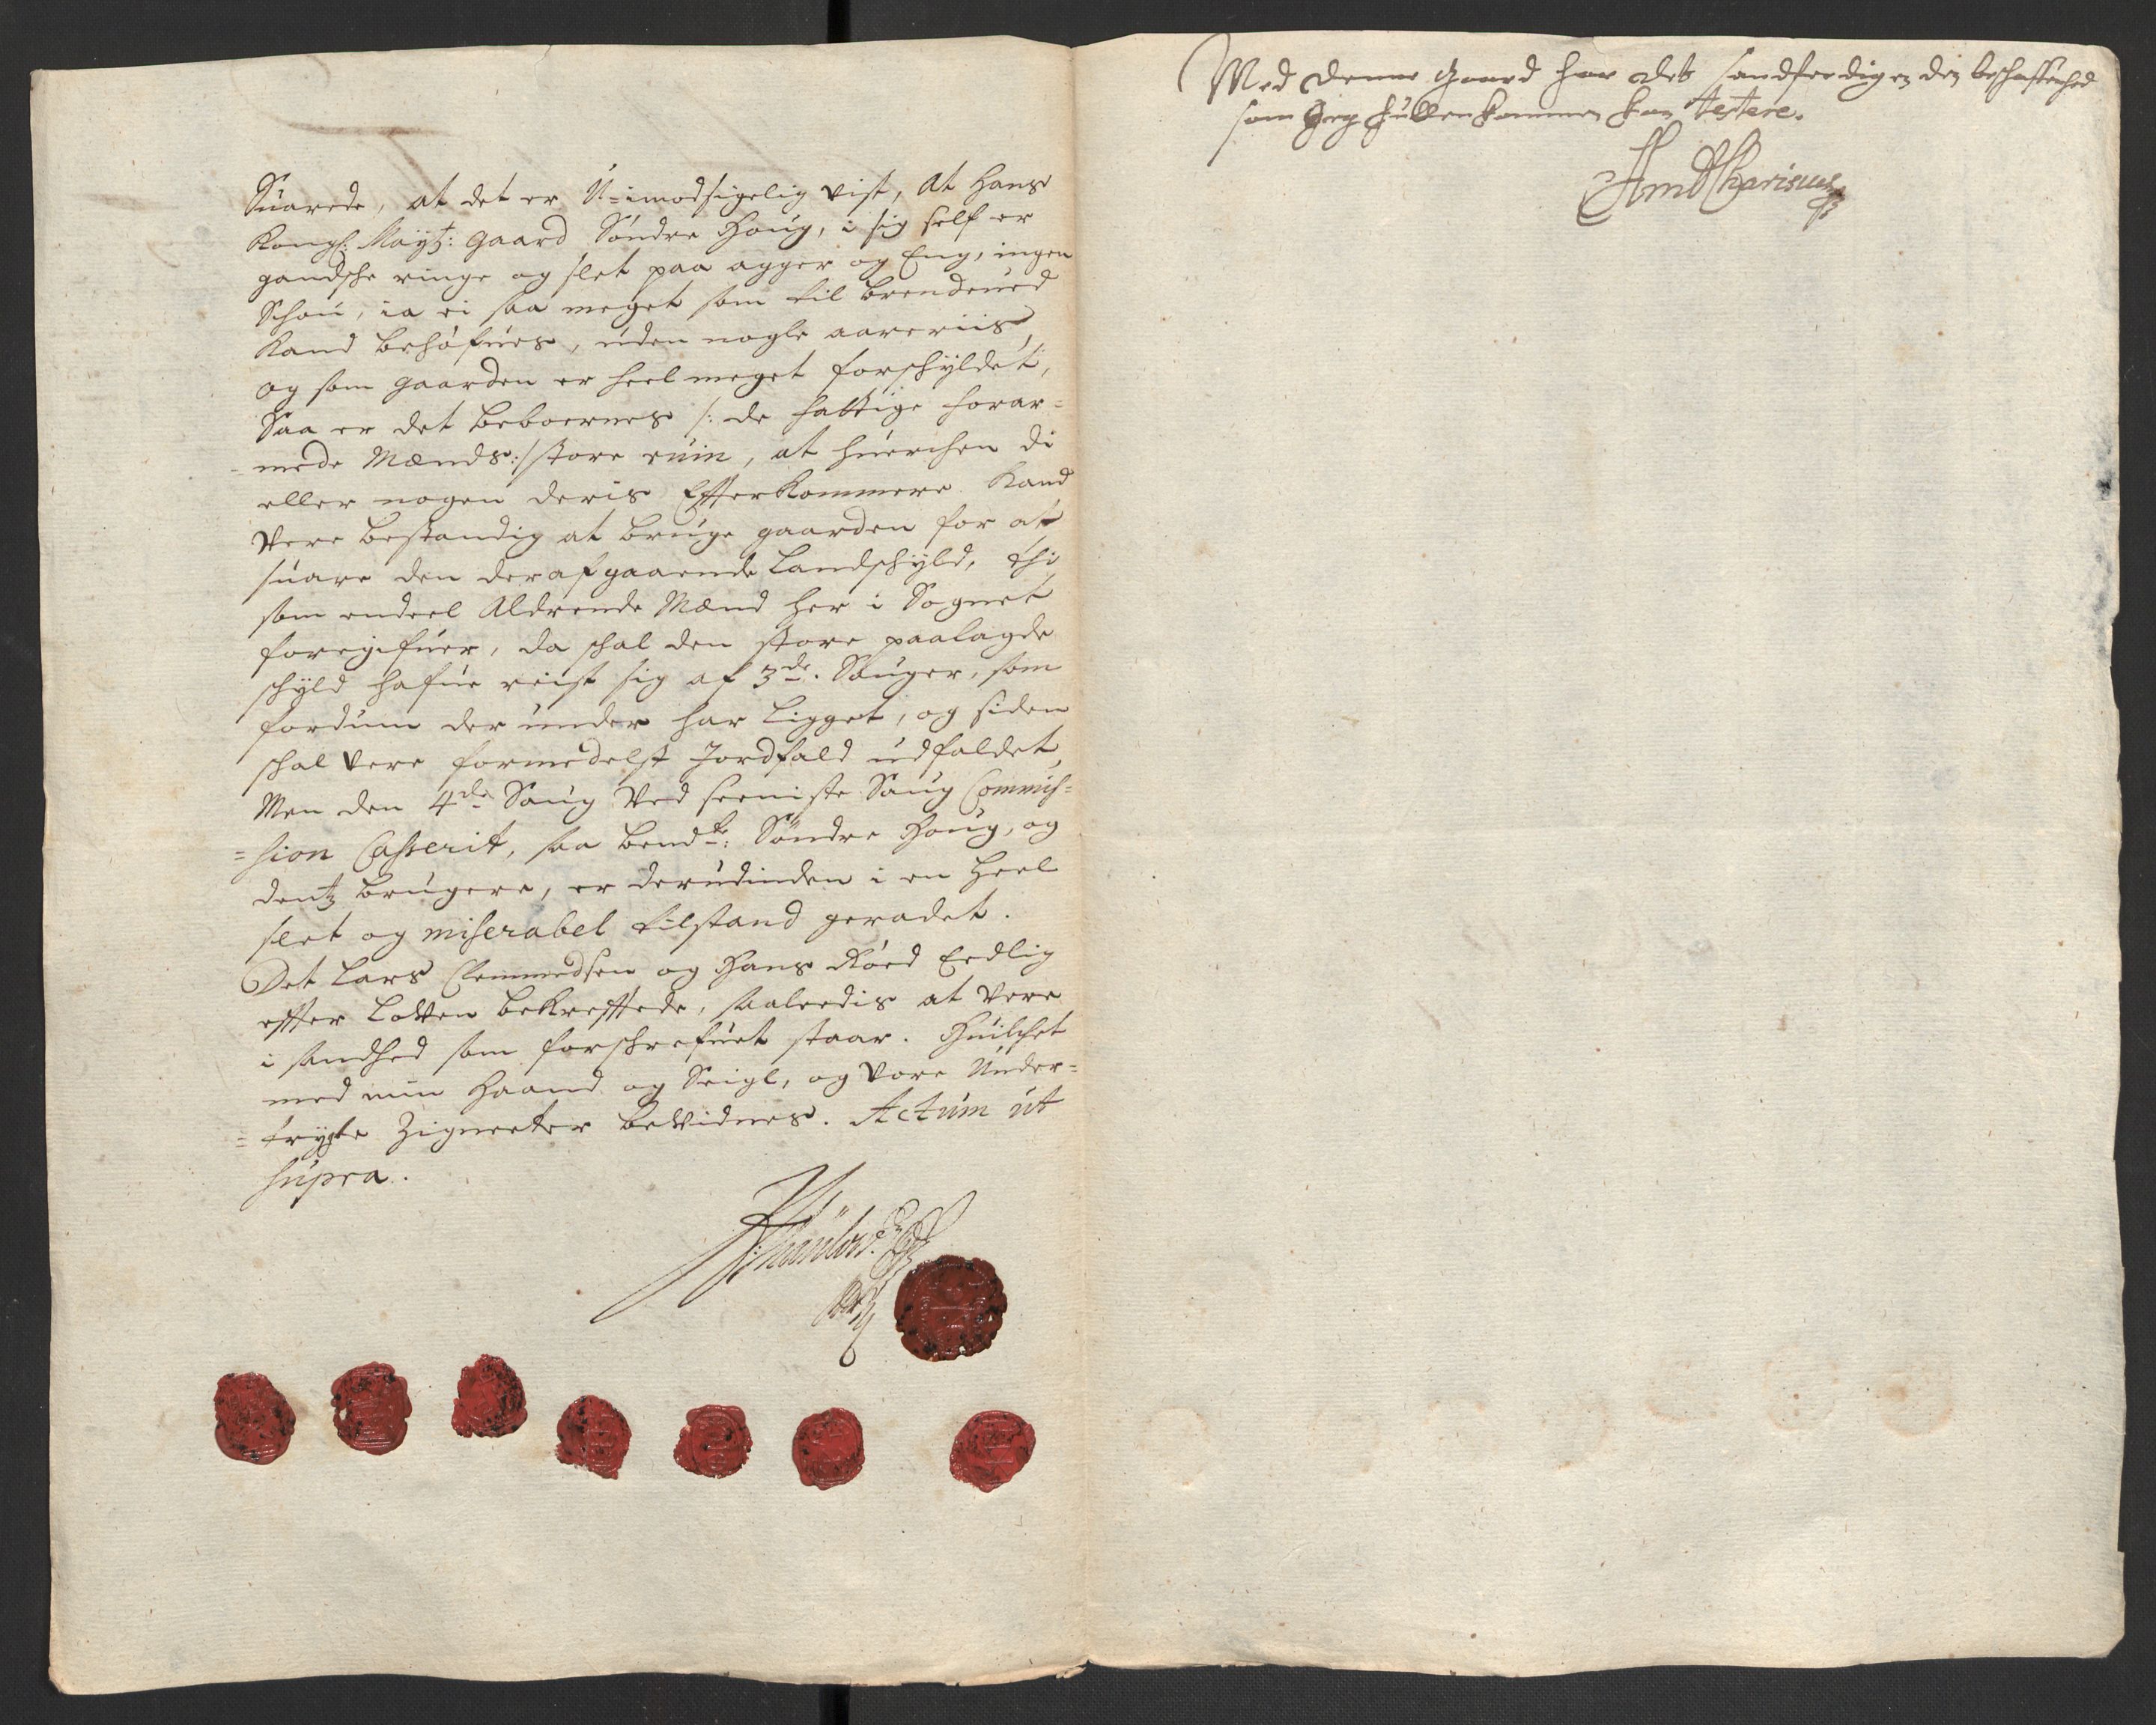 Suarede, at det er U-imodsigelig vist, At Hans
Kongl: Mayt: gaard Søndre Houg, i sig self er
gandsche ringe og slet paa agger og Eng, ingen
Schou, ia ei saa meget som til brendeued
Kand behøfues, uden nogle aareriis,
og som gaarden er heel meget forschyldet,
Saa er det beboernes /: de fattige forar=
mede Mænds :/ store ruin, at huerchen di
eller nogen deris Efterkommere Kand
Vere bestandig at bruge gaarden for at
suare den deraf gaaende Landschyld, thi
som endeel Aldrende Mænd her i Sognet
foregifuer, da schal den store paalagde
schyld hafue reist sig af 3de Sauger, som
fordum der under har ligget, og siden
schal Vere formedelst Jordfald udfaldet,
Men den 4de Saug Ved seeniste Saug Commis=
=sion Casserit, saa bemte: Søndre Houg, og
dentz brugere, er derudinden i en heel
slet og miserabel tilstand geradet.
Det Lars Clemmedsen og Hans Røed Eedlig
effter Lowen bekrefftede, saaleedis at Vere
i sandhed som forschrefuet staar. Huilchet
med min Haand og Seigl, og Vore Under=
=trygte Zigneeter bevidnes. Actum ut
supra.
Med denne Gaard har det sandferdig en den beschaffenhed
som Jeg fuldenkommen kan testere.